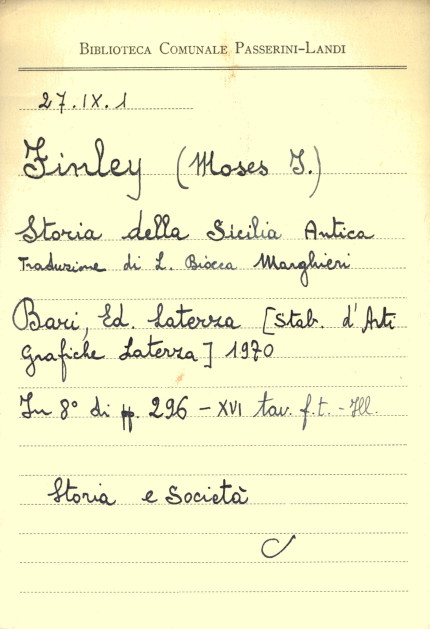 BIBLIOTECA COMUNALE PASSERINI-LANDI
27.IX.1
Finley (Moses I.)
Storia della Sicilia Antica
Traduzione di L. Biocca Marghieri
Bari, Ed. Laterza [Stab. d'Arti
Grafiche Laterza] 1970
In 8° di pp. 296 - XVI tav. f.t. - Ill.
Storia e Società